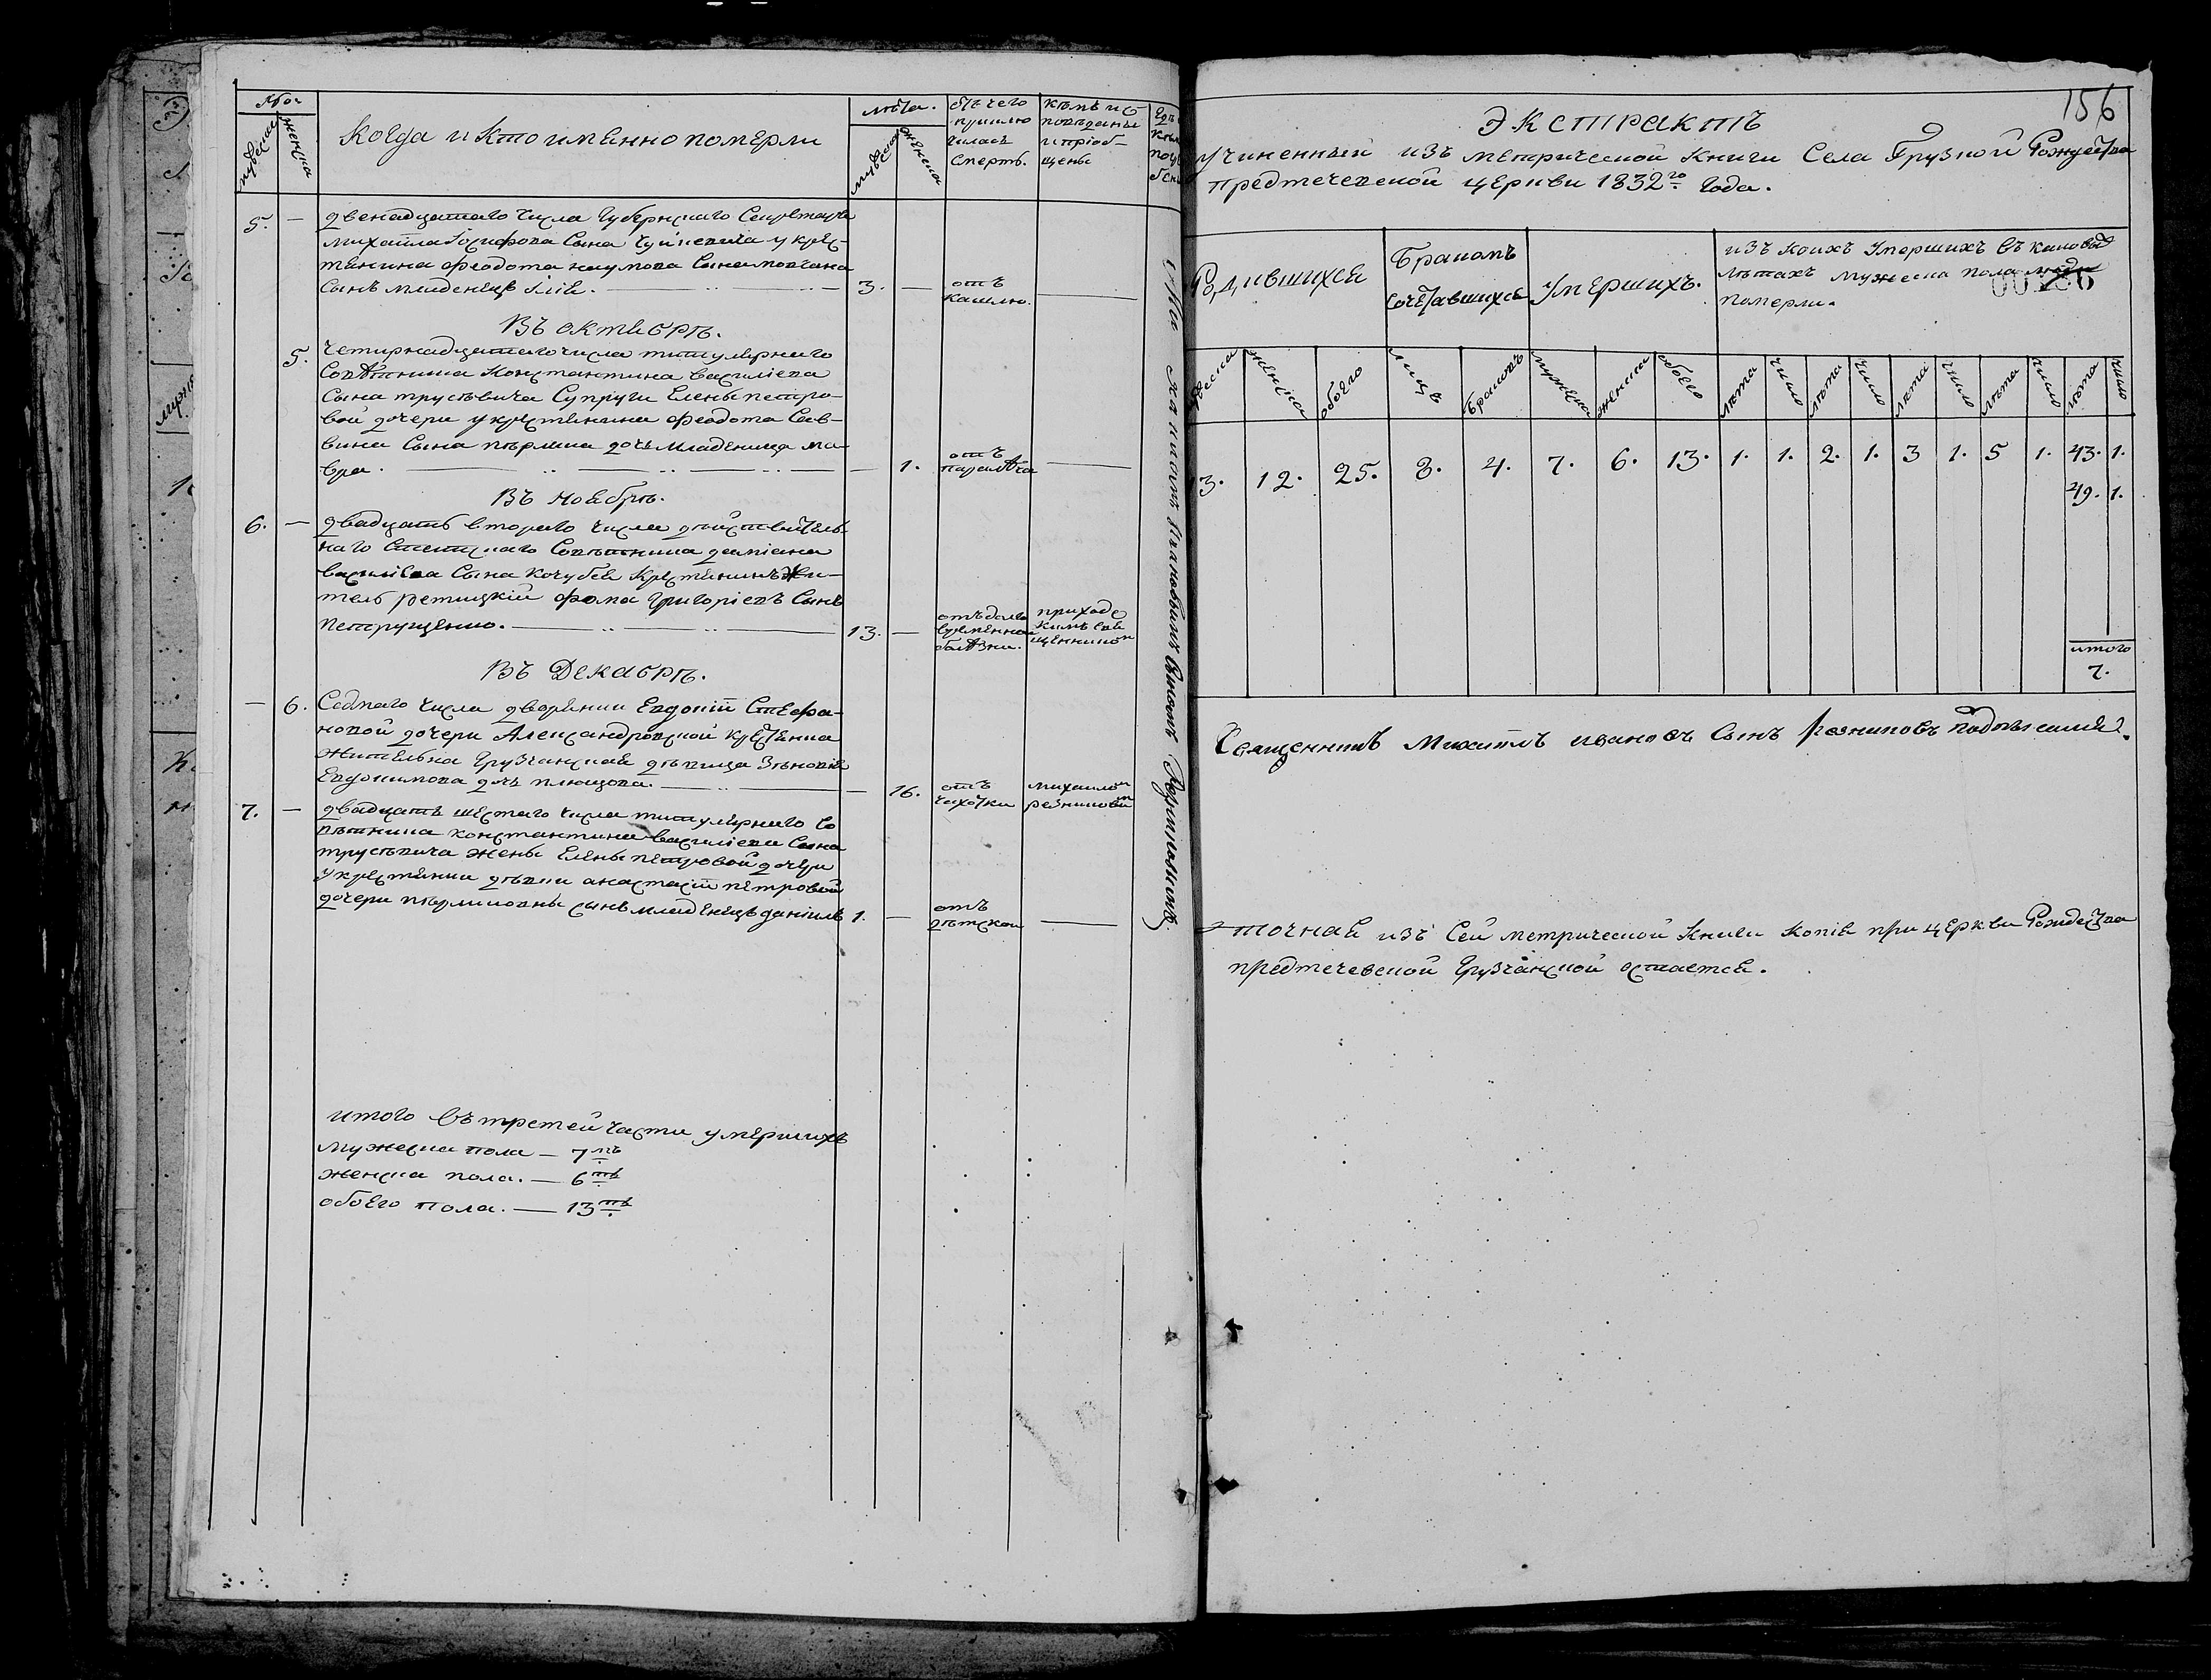 Когда и кто именно померли
лѣта.
отъ чего
приклю
чилась
смерть.
кѣмъ ис
повѣданы
и пріоб-
щены
мужеска
женска
мужеска
женска
5. — двенадцатаго числа Губернскаго Секретаря
Михаила Іосифова Сына Чуйкевича у крес-
тянина Феодота Наумова Сына
Сынъ младенецъ Илія. — 3. — отъ
кашлю.
Въ октябрѣ.
5. Четирнадцатаго числа титулярнаго
Совѣтника Константина Василіева
Сына Трусевича Супруги Елены Петро-
вой дочери у крестянина Феодота Сав-
вина Сына дочь младеница Ма
вра. — 1. отъ
Въ ноябрѣ.
6. — двадцать втораго числа дѣйствитель-
наго Статскаго Совѣтника Даміана
Василіева Сына Кочубея Крестянинъ Жи-
тель Фома Григоріевъ Сынъ
Петрущенко. — 13. — отъ долго
временной
болѣзни. приходс
кимъ свя
щенникомъ
Въ Декабрѣ.
— 6. Седмаго числа дворянки Евдокіи Стефа-
новой дочери Александровской крестянка
Жителька Грузчанская дѣвица Зѣновія
Евдокимова дочь — 16. отъ
чахотки Михаиломъ
Резниковимъ
7. — двадцать шестаго числа титулярнаго Со
вѣтника Константина Василіева Сына
Трусевича жены Елены Петровой дочери
у крестянки дѣвки Анастасіи Петровой
дочери сынъ младенецъ Даніилъ 1. — отъ
дѣтской —
итого въ третей части умершихъ
мужеска пола — 7мъ
женска пола. — 6ть
обоего пола. — 13ть
156
Экстрактъ
учиненный изъ метрической Книги Села Грузкой Рождества
предтечевской церкви 1832го года.
Родившихся
Бракомъ
сочетавшихся
Умершихъ.
изъ коихъ Умершихъ въ каковыхъ
лѣтахъ мужеска пола люди
померли.
женска обоего лицъ браковъ мужеска женска обоего лѣта число лѣта число лѣта число лѣта число лѣта число
13. 12. 25. 8. 4. 7. 6. 13. 1. 1. 2. 1. 3 1. 5 1. 43. 1.
49. 1.
итого
7.
Священникъ Михаилъ Ивановъ Сынъ Резниковъ подписался.
точная изъ Сей метрической Книги Копія при церкви Рождества
предтечевской Грузчанской остается.